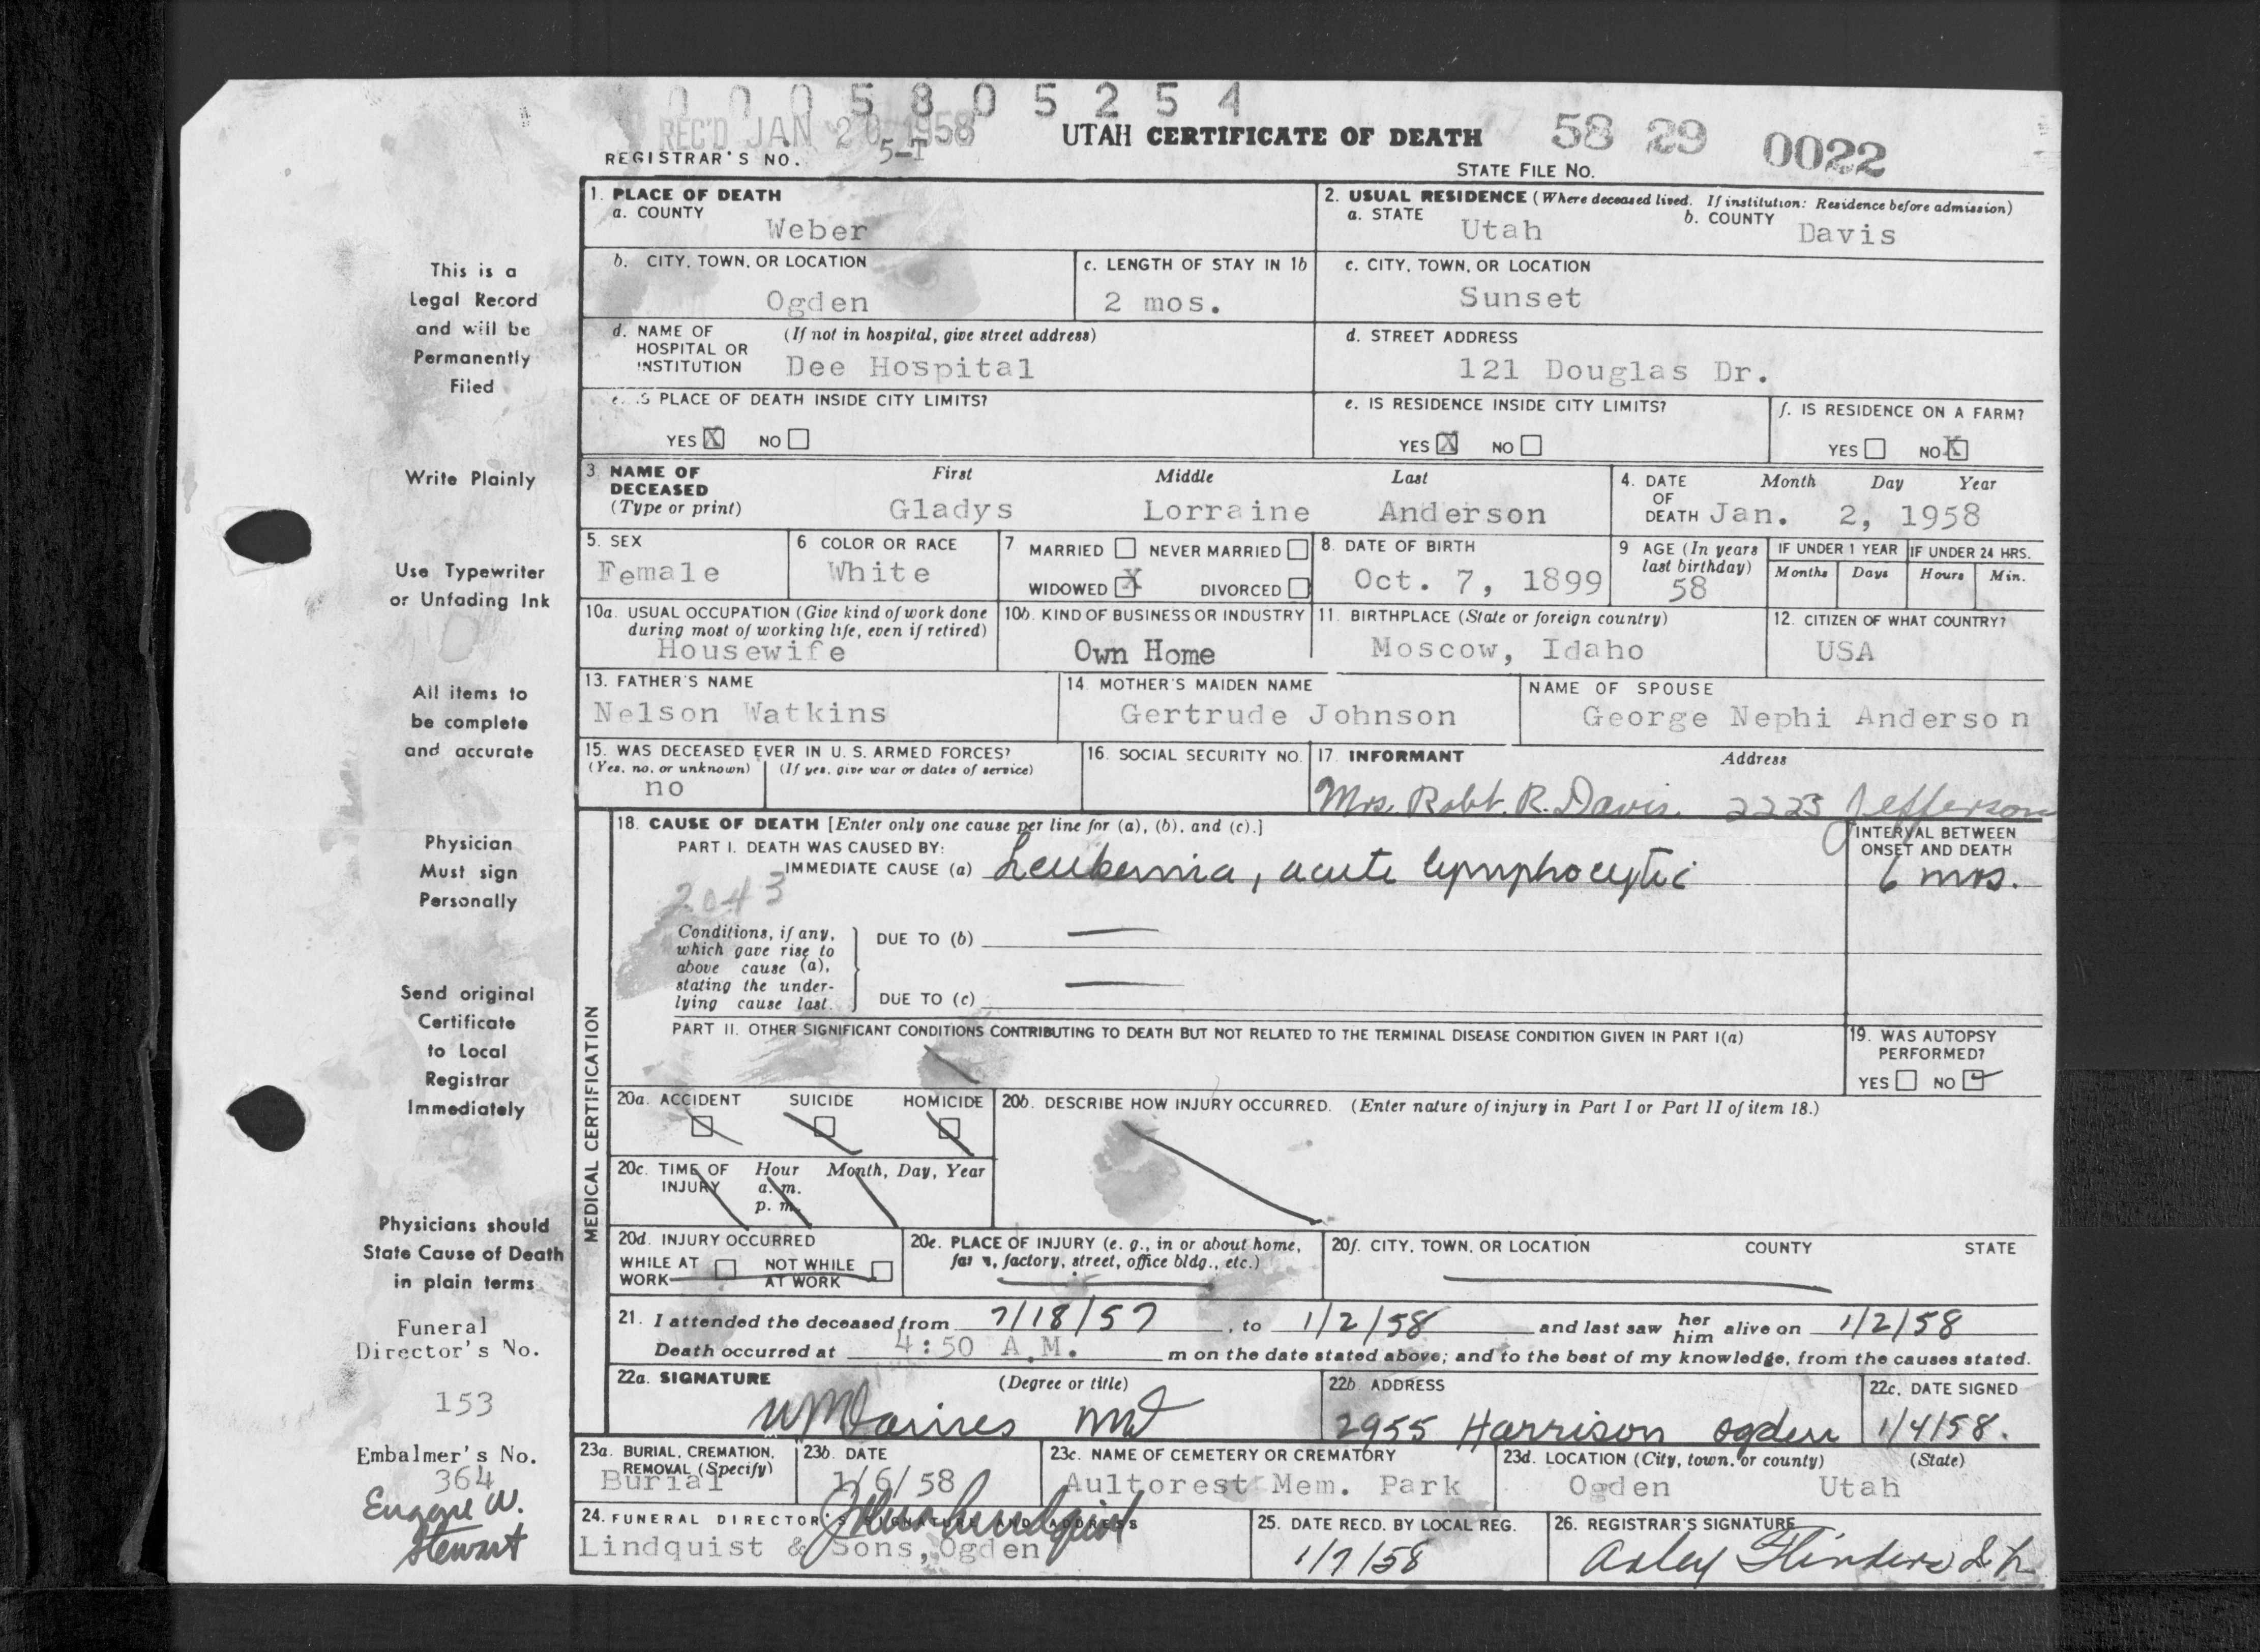 0 0 0 5 8 0 5 2 5 4
REC'D JAN 20 1958
UTAH CERTIFICATE OF DEATH 58 29 0022
REGISTRAR'S NO. 5-T STATE FILE NO.
1. PLACE OF DEATH
a. COUNTY
Weber
2. USUAL RESIDENCE (Where deceased lived. If institution: Residence before admission)
a. STATE Utah b. COUNTY Davis
b. CITY, TOWN, OR LOCATION
Ogden
c. LENGTH OF STAY IN 1b
2 mos.
c. CITY, TOWN, OR LOCATION
Sunset
d. NAME OF HOSPITAL OR INSTITUTION (If not in hospital, give street address)
Dee Hospital
d. STREET ADDRESS
121 Douglas Dr.
IS PLACE OF DEATH INSIDE CITY LIMITS?
YES X NO
e. IS RESIDENCE INSIDE CITY LIMITS?
YES X NO
f. IS RESIDENCE ON A FARM?
YES NO X
3. NAME OF DECEASED (Type or print)
First Middle Last
Gladys Lorraine Anderson
4. DATE OF DEATH Month Day Year
Jan. 2, 1958
5. SEX
Female
6 COLOR OR RACE
White
7 MARRIED NEVER MARRIED
WIDOWED X DIVORCED
8. DATE OF BIRTH
Oct. 7, 1899
9 AGE (In years last birthday)
58
IF UNDER 1 YEAR
Months Days
IF UNDER 24 HRS.
Hours Min.
10a. USUAL OCCUPATION (Give kind of work done during most of working life, even if retired)
Housewife
10b. KIND OF BUSINESS OR INDUSTRY
Own Home
11. BIRTHPLACE (State or foreign country)
Moscow, Idaho
12. CITIZEN OF WHAT COUNTRY?
USA
13. FATHER'S NAME
Nelson Watkins
14. MOTHER'S MAIDEN NAME
Gertrude Johnson
NAME OF SPOUSE
George Nephi Anderson
15. WAS DECEASED EVER IN U. S. ARMED FORCES?
(Yes, no, or unknown) (If yes, give war or dates of service)
no
16. SOCIAL SECURITY NO.
17. INFORMANT Address
Mrs. Robt. R. Davis. 2223 Jefferson
MEDICAL CERTIFICATION
18. CAUSE OF DEATH [Enter only one cause per line for (a), (b), and (c).]
PART I. DEATH WAS CAUSED BY:
IMMEDIATE CAUSE (a) Leukemia, acute lymphocytic
INTERVAL BETWEEN ONSET AND DEATH
6 mos.
2043
Conditions, if any, which gave rise to above cause (a), stating the underlying cause last.
DUE TO (b)
DUE TO (c)
PART II. OTHER SIGNIFICANT CONDITIONS CONTRIBUTING TO DEATH BUT NOT RELATED TO THE TERMINAL DISEASE CONDITION GIVEN IN PART I(a)
19. WAS AUTOPSY PERFORMED?
YES NO
20a. ACCIDENT SUICIDE HOMICIDE
20b. DESCRIBE HOW INJURY OCCURRED. (Enter nature of injury in Part I or Part II of item 18.)
20c. TIME OF INJURY Hour Month, Day, Year
a. m.
p. m.
20d. INJURY OCCURRED
WHILE AT WORK NOT WHILE AT WORK
20e. PLACE OF INJURY (e. g., in or about home, factory, street, office bldg., etc.)
20f. CITY, TOWN, OR LOCATION COUNTY STATE
21. I attended the deceased from 7/18/57, to 1/2/58 and last saw her him alive on 1/2/58
Death occurred at 4:50 A.M. m on the date stated above; and to the best of my knowledge, from the causes stated.
22a. SIGNATURE (Degree or title)
MD
22b. ADDRESS
2955 Harrison Ogden
22c. DATE SIGNED
1/4/58.
23a. BURIAL, CREMATION, REMOVAL (Specify)
Burial
23b. DATE
1/6/58
23c. NAME OF CEMETERY OR CREMATORY
Aultorest Mem. Park
23d. LOCATION (City, town, or county) (State)
Ogden Utah
24. FUNERAL DIRECTOR'S SIGNATURE AND ADDRESS
Lindquist & Sons, Ogden
25. DATE RECD. BY LOCAL REG.
1/7/58
26. REGISTRAR'S SIGNATURE
This is a
Legal Record
and will be
Permanently
Filed
Write Plainly
Use Typewriter
or Unfading Ink
All items to
be complete
and accurate
Physician
Must sign
Personally
Send original
Certificate
to Local
Registrar
Immediately
Physicians should
State Cause of Death
in plain terms
Funeral
Director's No.
153
Embalmer's No.
364
Eugene W.
Stewart